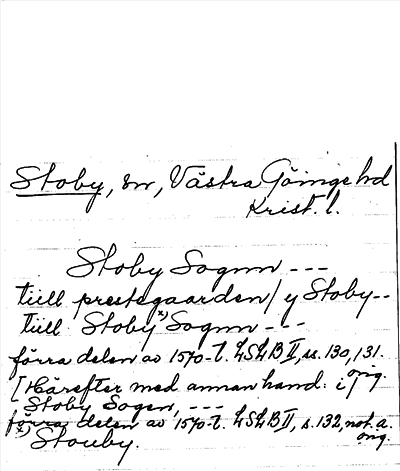 Stoby, sn, Västra Göinge hd
Krist. l.
Stoby Sognn ---
tiill prestegaarden / y Stoby --
tiill Stoby x) Sognn ---
förra delen av 1570-t. LSLB II, ss. 130, 131.
orig.
[Härefter med annan hand: i
Stoby Sogen, ---
förra delen av 1570-t. LSLB II, s. 132, not. a.
orig.
x) Stouby.